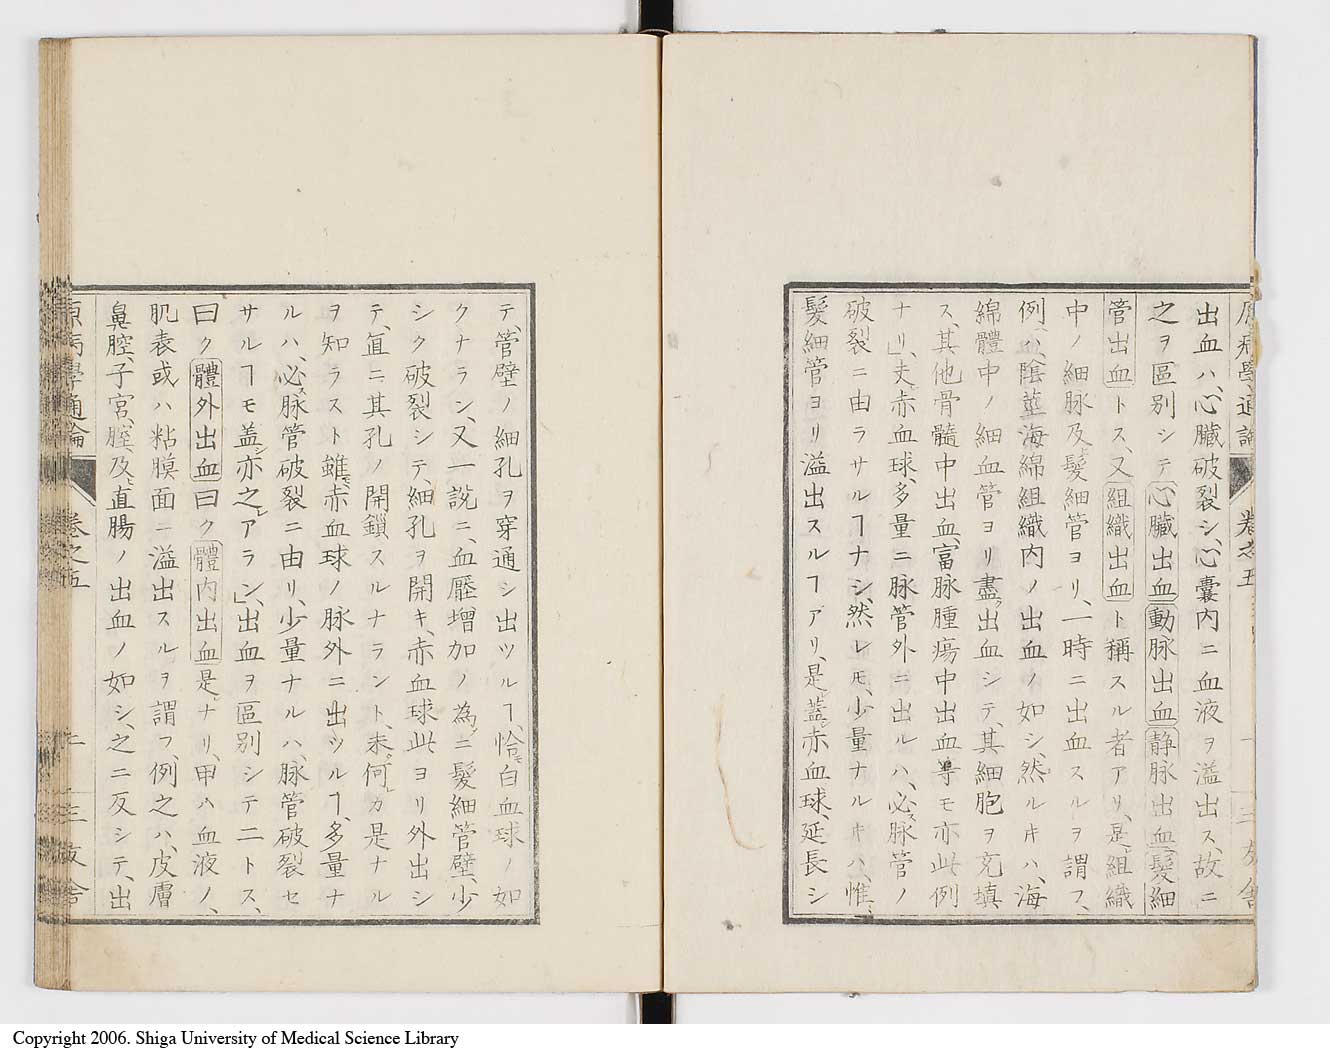 原病學通論 卷之五
出血ハ、心臟破裂シ、心囊内ニ血液ヲ溢出ス、故ニ
之ヲ區別シテ心臟出血動脉出血静脉出血、髮細
管出血トス、又組織出血ト稱スル者アリ、是レ組織
中ノ細脉及ヒ髮細管ヨリ、一時ニ出血スルヲ謂フ、
例之ハ、陰莖海綿組織内ノ出血ノ如シ、然ルキハ、海
綿體中ノ細血管ヨリ盡ク出血シテ、其細胞ヲ充填
ス、其他骨髓中出血、富脉腫瘍中出血等モ亦此例
ナリ」、夫レ赤血球、多量ニ脉管外ニ出ルハ、必ス脉管ノ
破裂ニ由ラサルヿナシ、然レ𪜈、少量ナルキハ、惟タ
髮細管ヨリ溢出スルヿアリ、是レ蓋シ赤血球、延長シ
テ、管壁ノ細孔ヲ穿通シ出ツルヿ、恰モ白血球ノ如
クナラン、又一説ニ、血壓增加ノ為メニ髮細管壁、少
シク破裂シテ、細孔ヲ開キ、赤血球此ヨリ外出シ
テ、直ニ其孔ノ閉鎖スルナラント、未タ何レカ是ナル
ヲ知ラスト雖モ、赤血球ノ脉外ニ出ツルヿ、多量ナ
ルハ、必ス脉管破裂ニ由リ、少量ナルハ、脉管破裂セ
サルヿモ蓋シ亦之レアラン」、出血ヲ區別シテ二トス、
曰ク體外出血曰ク體内出血是レナリ、甲ハ血液ノ、
肌表或ハ粘膜面ニ溢出スルヲ謂フ、例之ハ、皮膚
鼻腔、子宮、膣、及ヒ直腸ノ出血ノ如シ、之ニ反シテ、出
原病學通論 卷之五
Copyright 2006. Shiga University of Medical Science Library